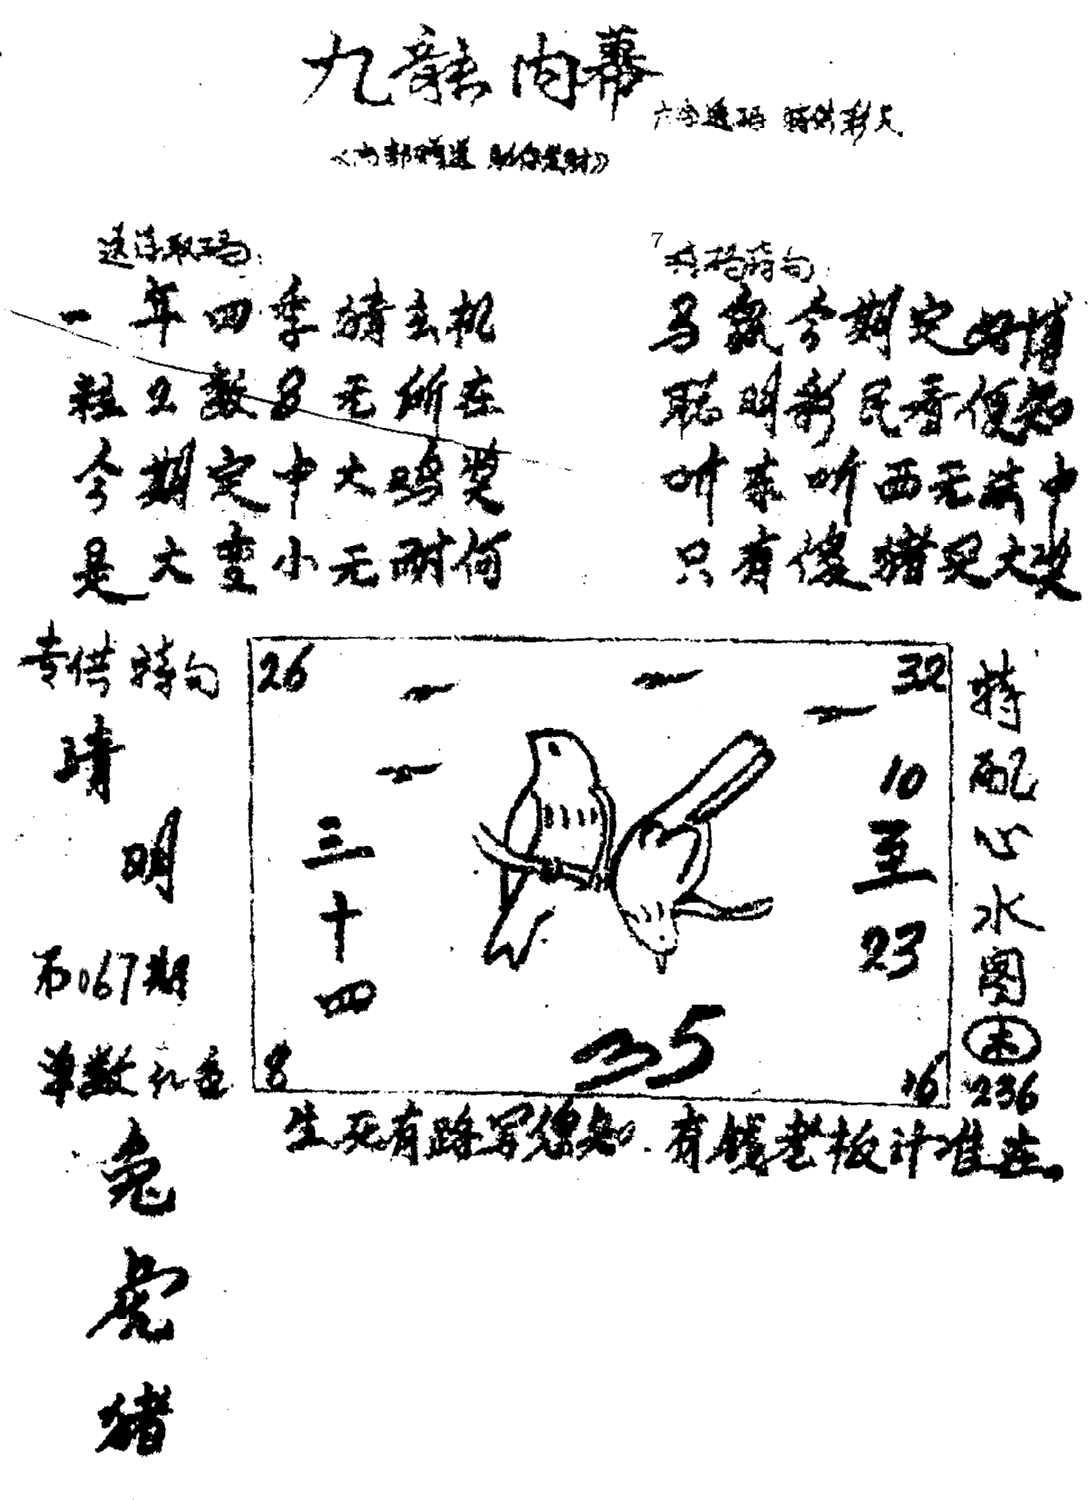 九龍内幕
六字透码 特供彩民
《内部赠送 助你发财》
送诗取码:
一年四季猜玄机
粒2数8无所在
今期定中大鸡奖
是大变小无耐何
7
特码诗句:
马氛今期定必博
聪明彩民看便知
听东听西无法中
只有傻猪买大奖
专供特句
晴
明
067期
单数礼
兔
虎
猪
26
32
三十四
10至23
35
8
16
特配心水图
木
236
生死有路早须知。有钱老板计准在。